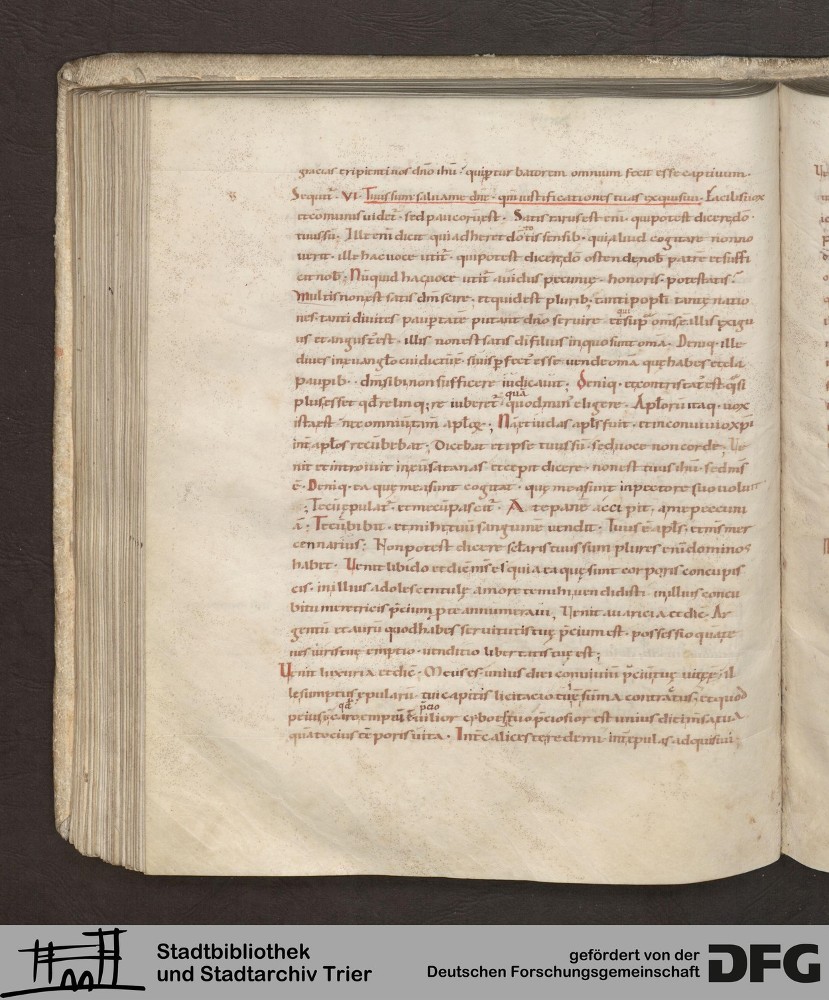 gracias eripienti nos dno ihu · qui ptur batorem omnium fecit esse captivum ·
Sequit · VI · Tuus sum salvame dne · qm iustificationes tuas exquisivi · Facilis vox
et comunis videt · sed paucorū est · Satis rarus est eni · qui potest dicere dō ·
tuus sū · Ille eni dicit qui adheret dō totis sensib · qui aliud cogitare non no
verit · ille hac voce utit · qui potest dicere dō ostende nob patre et suffi
cit nob · Nūquid hac voce utit avidus pecunię · honoris · potestatis ·
Multis non est satis dm scire · et quid est plurib · tanti popli tante natio
nes · tanti divites paupertate putant dno servire · et qui sup oms e · illis exigu
us et angust est · illis non est satis di filius in quo sunt oma · Deniq · ille
dives in evanglo cui dicture · si vis pfect esse vende oma quę habes et da
paupib · dm sibi non sufficere iudicavit · Deniq · et contristat est q̄si
plus esset qd relinq;re iuberet quā quod mun eligere · Aploru itaq · vox
ista est · nec omnium tam aplor · Nā et iudas apls fuit · et in convivio xpi
int aplos recūbebat · Dicebat et ipse tuus sū · sed voce non corde · Ve
nit et introivit in eū satanas et cepit dicere · non est tuus ihu · sed ms
ē · Deniq · ea quę mea sunt cogitat · quę mea sunt in pectore suo voluit
Tecū epulat · et mecū pascit · A te pane accipit · a me pecuni
ā · Tecū bibit · et mihi tuū sanguine vendit · Tuus ē apls · et ms mer
cennarius · Non potest dicere sclaris tuus sum plures eni dominos
habet · Venit libido et dic ms es quia ea quę sunt corporis concupis
cis · in illius adolescentulę amore te mihi vendidisti · in illius concu
bitu meretricis pcium p te annumeravi · Venit avaricia et dic · Ar
gentū et aurū quod habes servitutis tuę pcium est · possessio quā te
nes iuris tuę emptio · venditio libertatis tuę est ;
Venit luxuria et dic · Meus es · unius diei conviviū pciū tuę vitę · il
le sumptus epularū · tui capitis licitacio · contractus · et quod
peius · qd caro emptū pcio vilior cybo · pciosior est unius diei msa tua
quā tocius te poris vita · Int calices te redemi · int epulas adquisivi
Stadtbibliothek
und Stadtarchiv Trier
gefördert von der
Deutschen Forschungsgemeinschaft
DFG